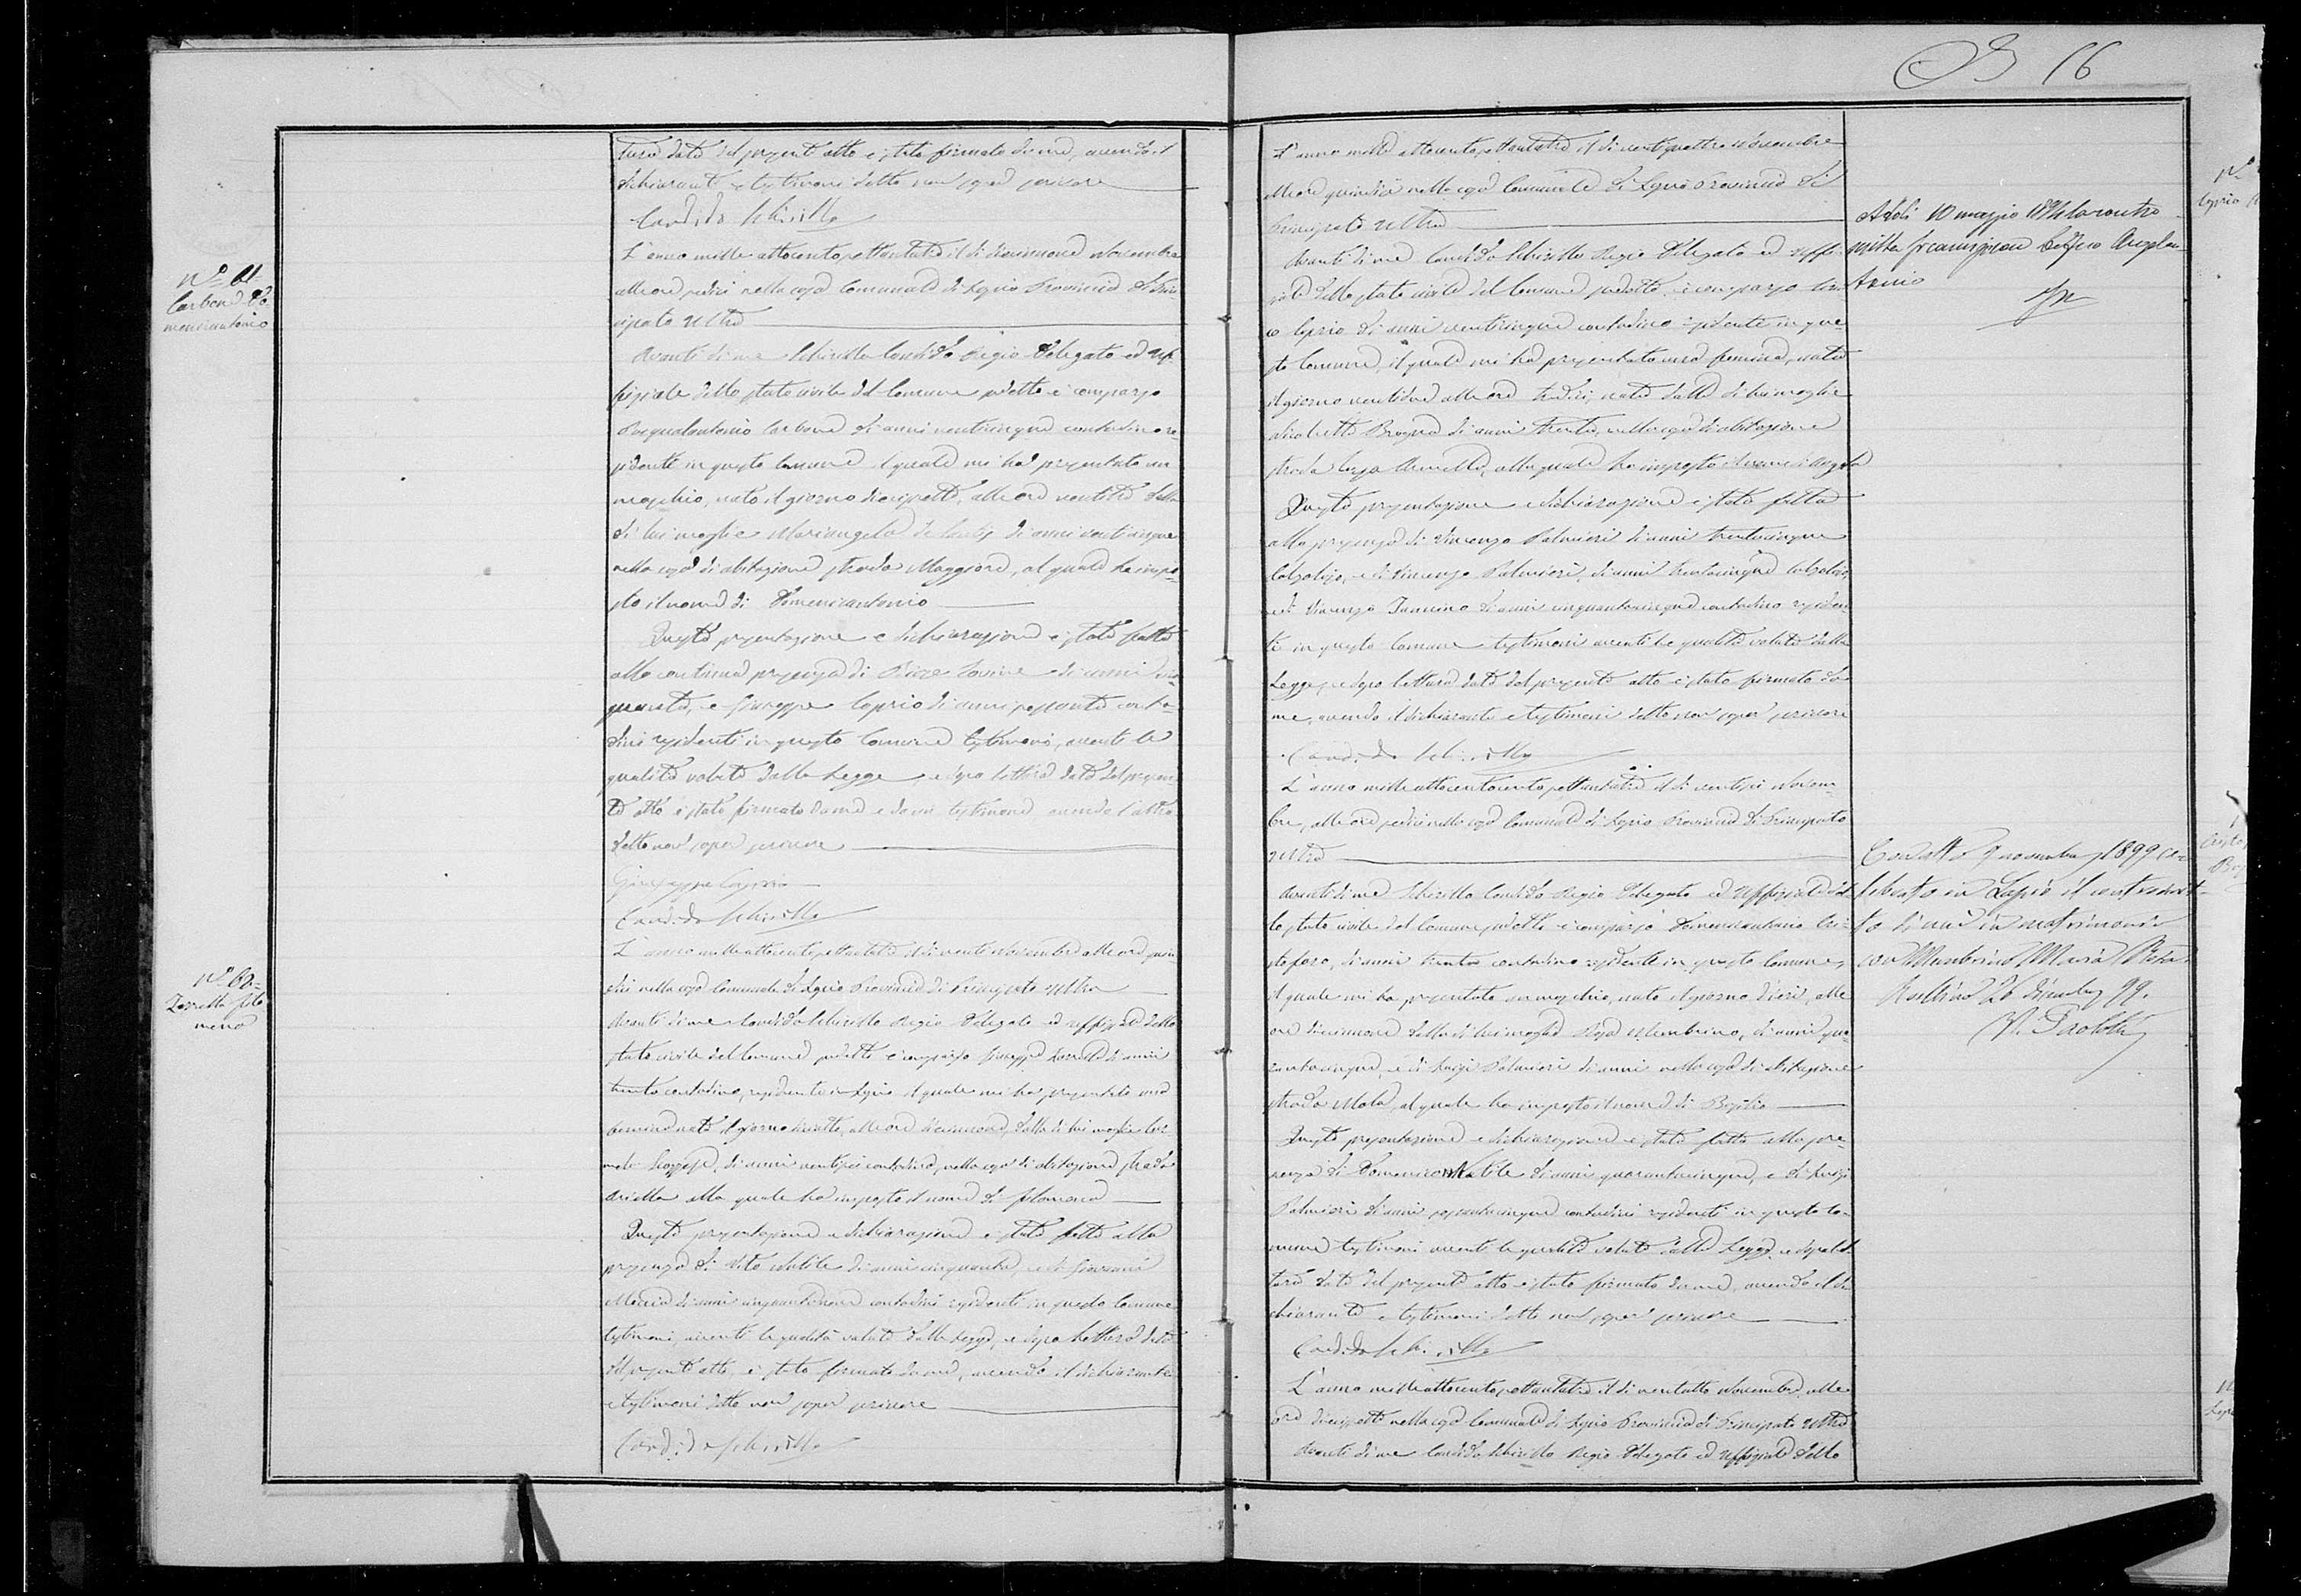 tura data del presente atto è stato firmato da me, avendo il
dichiarante e testimoni detto non saper scrivere
Candido Schirillo
N.° 61
Carbone Do
menicantonio
L'anno mille ottocento settantatre il dì diecinnove Novembre
alle ore sedici nella casa Comunale di Lapio Provincia di Prin
cipato Ultra
Avanti di me Schirillo Candido Regio Delegato ed Uf
fiziale dello stato civile del Comune sudetto è comparso
Pasqualantonio Carbone di anni venticinque contadino re
sidente in questo Comune il quale mi ha presentato un
maschio, nato il giorno diecisette, alle ore ventitre dalla
di lui moglie Mariangela de Santis di anni venticinque
nella casa di abitazione strada Maggiore, al quale ha impo
sto il nome di Domenicantonio
Questa presentazione e dichiarazione è stata fatta
alla continua presenza di di anni cin
quanta, e Giuseppe Caprio di anni sessanta conta
dini residenti in questo Comune testimoni, aventi le
qualità volute dalla Legge, e dopo lettura data del presen
te atto è stato firmato da me e da un testimone avendo l'altro
detto non saper scrivere
Giuseppe Caprio
Candido Schirillo
N.° 62
Zarrella Filo
mena
L'anno mille ottocento settantatre il dì venti Novembre alle ore quin
dici nella casa Comunale di Lapio Provincia di Principato Ultra
Avanti di me Candido Schirillo Regio Delegato ed Uffiziale dello
stato civile del Comune sudetto è comparso Giuseppe Zarrella di anni
trenta contadino, residente in Lapio il quale mi ha presentato una
femina nata il giorno diciotto, alle ore diecinnove, dalla di lui moglie Car
mela di anni ventisei contadina, nella casa di abitazione strada
Ariella alla quale ha imposto il nome di Filomena
Questa presentazione e dichiarazione è stata fatta alla
presenza di Vito Natile di anni cinquanta, e di Giovanni
di anni cinquantanove contadini residenti in questo Comune
testimoni, aventi le qualità volute dalla Legge, e dopo lettura data
del presente atto, è stato firmato da me, avendo il dichiarante
e testimoni detto non saper scrivere
Candido Schirillo
16
L'anno mille ottocento settantatre il dì ventiquattro Novembre
alle ore quindici nella casa Comunale di Lapio Provincia di
Principato Ultra
Avanti di me Candido Schirillo Regio Delegato ed Uffi
ziale dello stato civile del Comune sudetto è comparso
Caprio di anni venticinque contadino residente in que
sto Comune, il quale mi ha presentato una femina, nata
il giorno ventidue alle ore tredici, nata dalla di lui moglie
Nicoletta Brogna di anni trenta, nella casa di abitazione
strada alla quale ha imposto il nome di
Questa presentazione e dichiarazione è stata fatta
alla presenza di Vincenzo Palmieri di anni trentacinque
Calzolajo, e di Vincenzo Palmieri, di anni trentacinque calzolajo,
e di Vincenzo Iannino di anni cinquantacinque contadino residen
ti in questo Comune testimoni aventi le qualità volute dalla
Legge, e dopo lettura data del presente atto è stato firmato da
me, avendo il dichiarante e testimoni detto non saper scrivere
Candido Schirillo
Addì 10 maggio 1894 la contro
L'anno mille ottocentocento settantatre il dì ventisei Novem
bre, alle ore sedici nella casa Comunale di Lapio Provincia di Principato
Ultra
Avanti di me Schirillo Candido Regio Delegato ed Uffiziale del
lo stato civile del Comune sudetto è comparso Domenicantonio Cri
stofaro, di anni trenta contadino residente in questo Comune,
il quale mi ha presentato un maschio, nato il giorno dieci, alle
ore diecinnove dalla di lui moglie Rosa Mambrino, di anni qua
rantacinque, e di Luigi Palmieri di anni nella casa di abitazione
strada Mola, al quale ha imposto il nome di Basilio
Questa presentazione e dichiarazione è stata fatta alla pre
senza di Domenico Natile di anni quarantacinque, e di Luigi
Palmieri di anni sessantacinque contadini residenti in questo Co
mune testimoni aventi le qualità volute dalla Legge, e dopo let
tura data del presente atto è stato firmato da me, avendo il di
chiarante e testimoni detto non saper scrivere
Candido Schirillo
Con atto 9 novembre 1899 ce
lebrato in Lapio il controscrit
to si unì in matrimonio
con Mambrino Maria
26 dicembre 99.
L'anno mille ottocento settantatre il dì ventotto Novembre alle
ore diecisette nella casa Comunale di Lapio Provincia di Principato Ultra
Avanti di me Candido Schirillo Regio Delegato ed Uffiziale dello